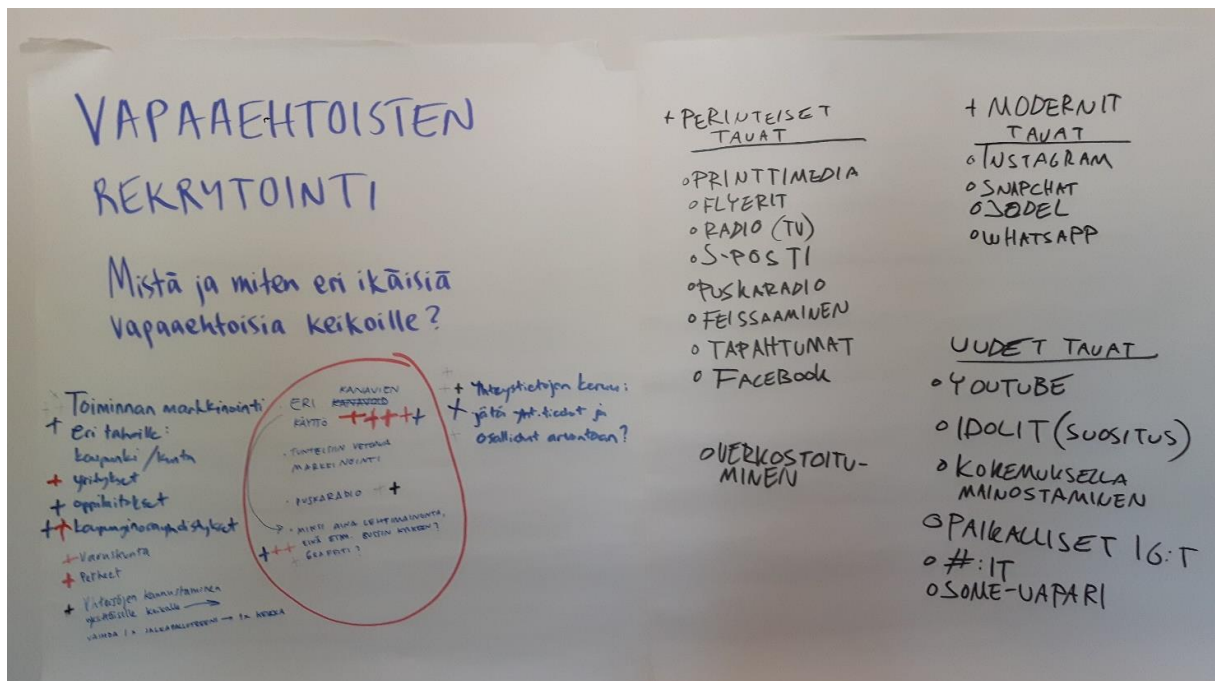 VAPAAEHTOISTEN
REKRYTOINTI
Mistä ja miten eri ikäisiä
vapaaehtoisia keikoille?
Toiminnan markkinointi
+ Eri tahoille:
kaupunki / kunta
+ yritykset
+ oppilaitokset
++ kaupunginosayhdistykset
+ Varuskunta
+ Perheet
+ Yhteisöjen kannustaminen
keikalle
KANAVIEN
ERI KANAVOID
KÄYTTÖ +++++
• TUNTEISIIN VETOAVA
MARKKINOINTI
• PUSKARADIO ++
• MIKSI AINA LEHTIMAINONTA,
EIKÄ ESIM. BUSSIN KYLKEEN?
+++ GRAFFITI?
+ Yhteystietojen keruu:
+ jätä yht.tiedot ja
osallistut arvontaan?
+ PERINTEISET
TAVAT
o PRINTTIMEDIA
o FLYERIT
o RADIO (TV)
o S-POSTI
o PUSKARADIO
o FEISSAAMINEN
o TAPAHTUMAT
o FACEBOOK
o VERKOSTOITU-
MINEN
+ MODERNIT
TAVAT
o INSTAGRAM
o SNAPCHAT
o JODEL
o WHATSAPP
UUDET TAVAT
• YOUTUBE
o IDOLIT (SUOSITUS)
o KOKEMUKSELLA
MAINOSTAMINEN
o PAIKALLISET IG:T
o #:IT
o SOME-VAPARI